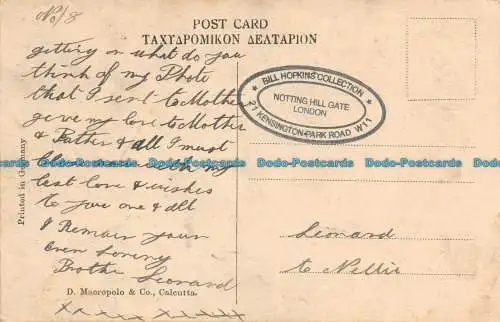 No/8
POST CARD
ΤΑΧΥΔΡΟΜΙΚΟΝ ΔΕΛΤΑΡΙΟΝ
getting on what do you
think of my Photo
that I sent to Mother
give my love to Mother
& Father & all I must
close now with my
best love & wishes
to you one & all
I Remain your
ever loving
Brother Leonard
x x x x x x x x x
Printed in Germany
D. Macropolo & Co., Calcutta.
BILL HOPKINS COLLECTION
NOTTING HILL GATE
LONDON
21 KENSINGTON PARK ROAD W11
Leonard
to Nellie
Dodo-Postcards Dodo-Postcards Dodo-Postcards Dodo-Postcards